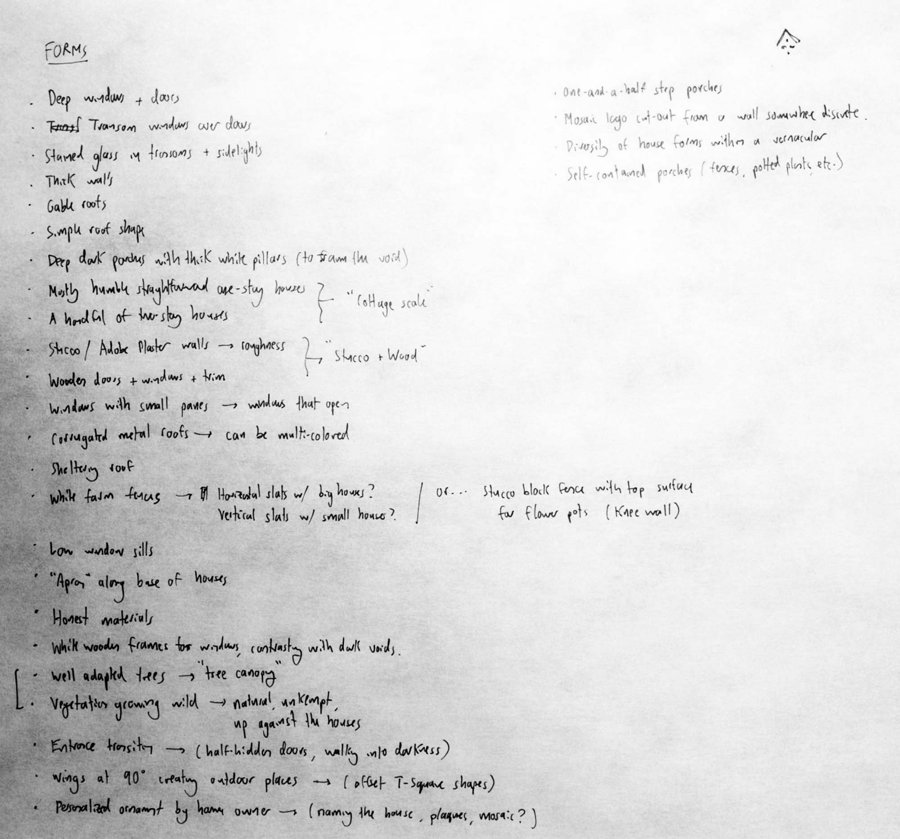 FORMS
· Deep windows + doors
· Transom windows over doors
· Stained glass in transoms + sidelights
· Thick walls
· Gable roofs
· Simple roof shape
· Deep dark porches with thick white pillars (to frame the void)
· Mostly humble straightforward one-story houses
"Cottage scale"
· A handful of two-story houses
· Stucco / Adobe Plaster walls → roughness
"Stucco + Wood"
· Wooden doors + windows + trim
· Windows with small panes → windows that open
· Corrugated metal roofs → can be multi-colored
· Sheltering roof
· White farm fences → Horizontal slats w/ big houses?
Vertical slats w/ small houses?
or... Stucco block fence with top surface
for flower pots (Knee wall)
· Low window sills
· "Apron" along base of houses
· Honest materials
· White wooden frames for windows, contrasting with dark voids.
· Well adapted trees → "tree canopy"
· Vegetation growing wild → natural, unkempt,
up against the houses
· Entrance transition → (half-hidden doors, walking into darkness)
· Wings at 90° creating outdoor places → (offset T-Square shapes)
· Personalized ornament by home owner → (naming the house, plaques, mosaic?)
· One-and-a-half step porches
· Mosaic logo cut-out from a wall somewhere discrete.
· Diversity of house forms within a vernacular
· Self-contained porches (fences, potted plants, etc.)